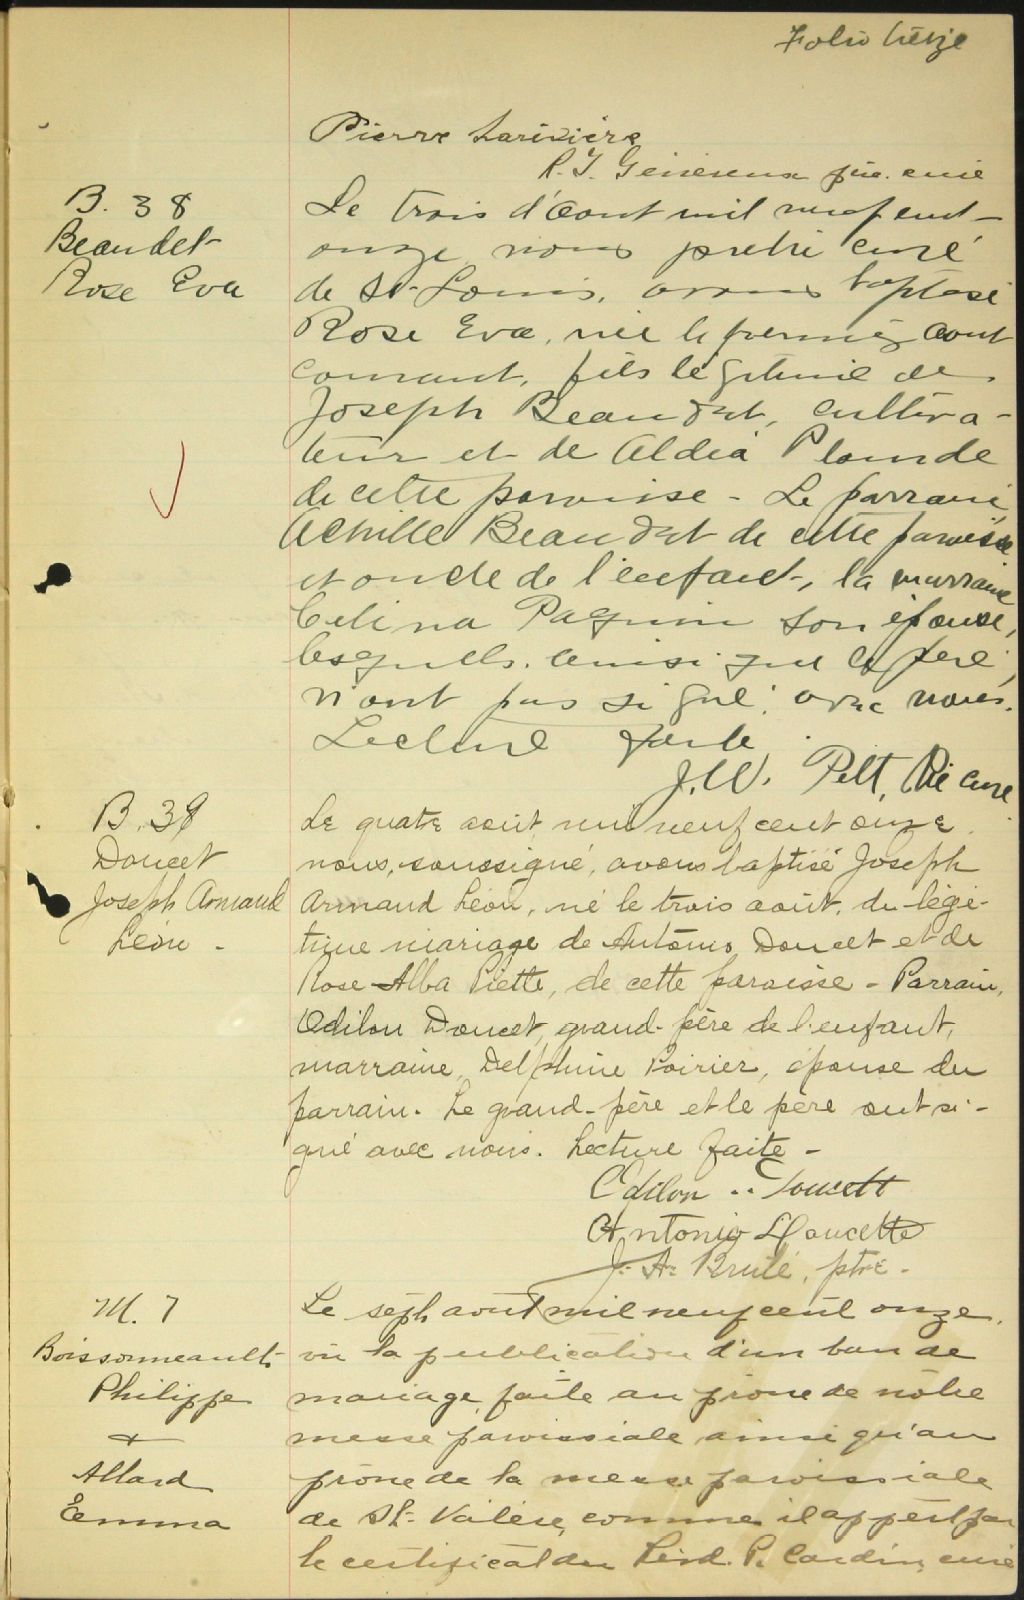 Folio treize
Pierre Larivière
Ptre curé
B. 38
Beaudet
Rose Eva
Le trois d'août mil neuf cent-
onze, nous prêtre curé
de St-Louis, avons baptisé
Rose Eva, née le premier août
courant, fils légitime de
Joseph Beaudet, cultiva-
teur et de Aldéa Plourde
de cette paroisse - Le parrain
Achille Beaudet de cette paroisse
et oncle de l'enfant, la marraine
Celina Paquin son épouse,
lesquels ainsi que le père,
n'ont pas signé avec nous.
Lecture faite.
J. W. Pelt, Ptre curé
B. 39
Doucet
Joseph Armand
Léon -
Le quatre août mil neuf cent onze
nous, soussigné, avons baptisé Joseph
Armand Léon, né le trois août, du légi-
time mariage de Antonio Doucet et de
Rose-Alba Piette, de cette paroisse - Parrain,
Odilon Doucet, grand-père de l'enfant,
marraine, Delphine Poirier, épouse du
parrain. Le grand-père et le père ont si-
gné avec nous. Lecture faite -
Odilon Doucett
Antonio Doucette
J. A. Brulé, ptre.
M. 7
Boissonneault
Philippe
+
Allard
Emma
Le sept août mil neuf cent onze,
vu la publication d'un ban de
mariage faite au prône de notre
messe paroissiale ainsi qu'au
prône de la messe paroissiale
de St-Valère, comme il appert par
le certificat du Révd. P. Cardin, curé